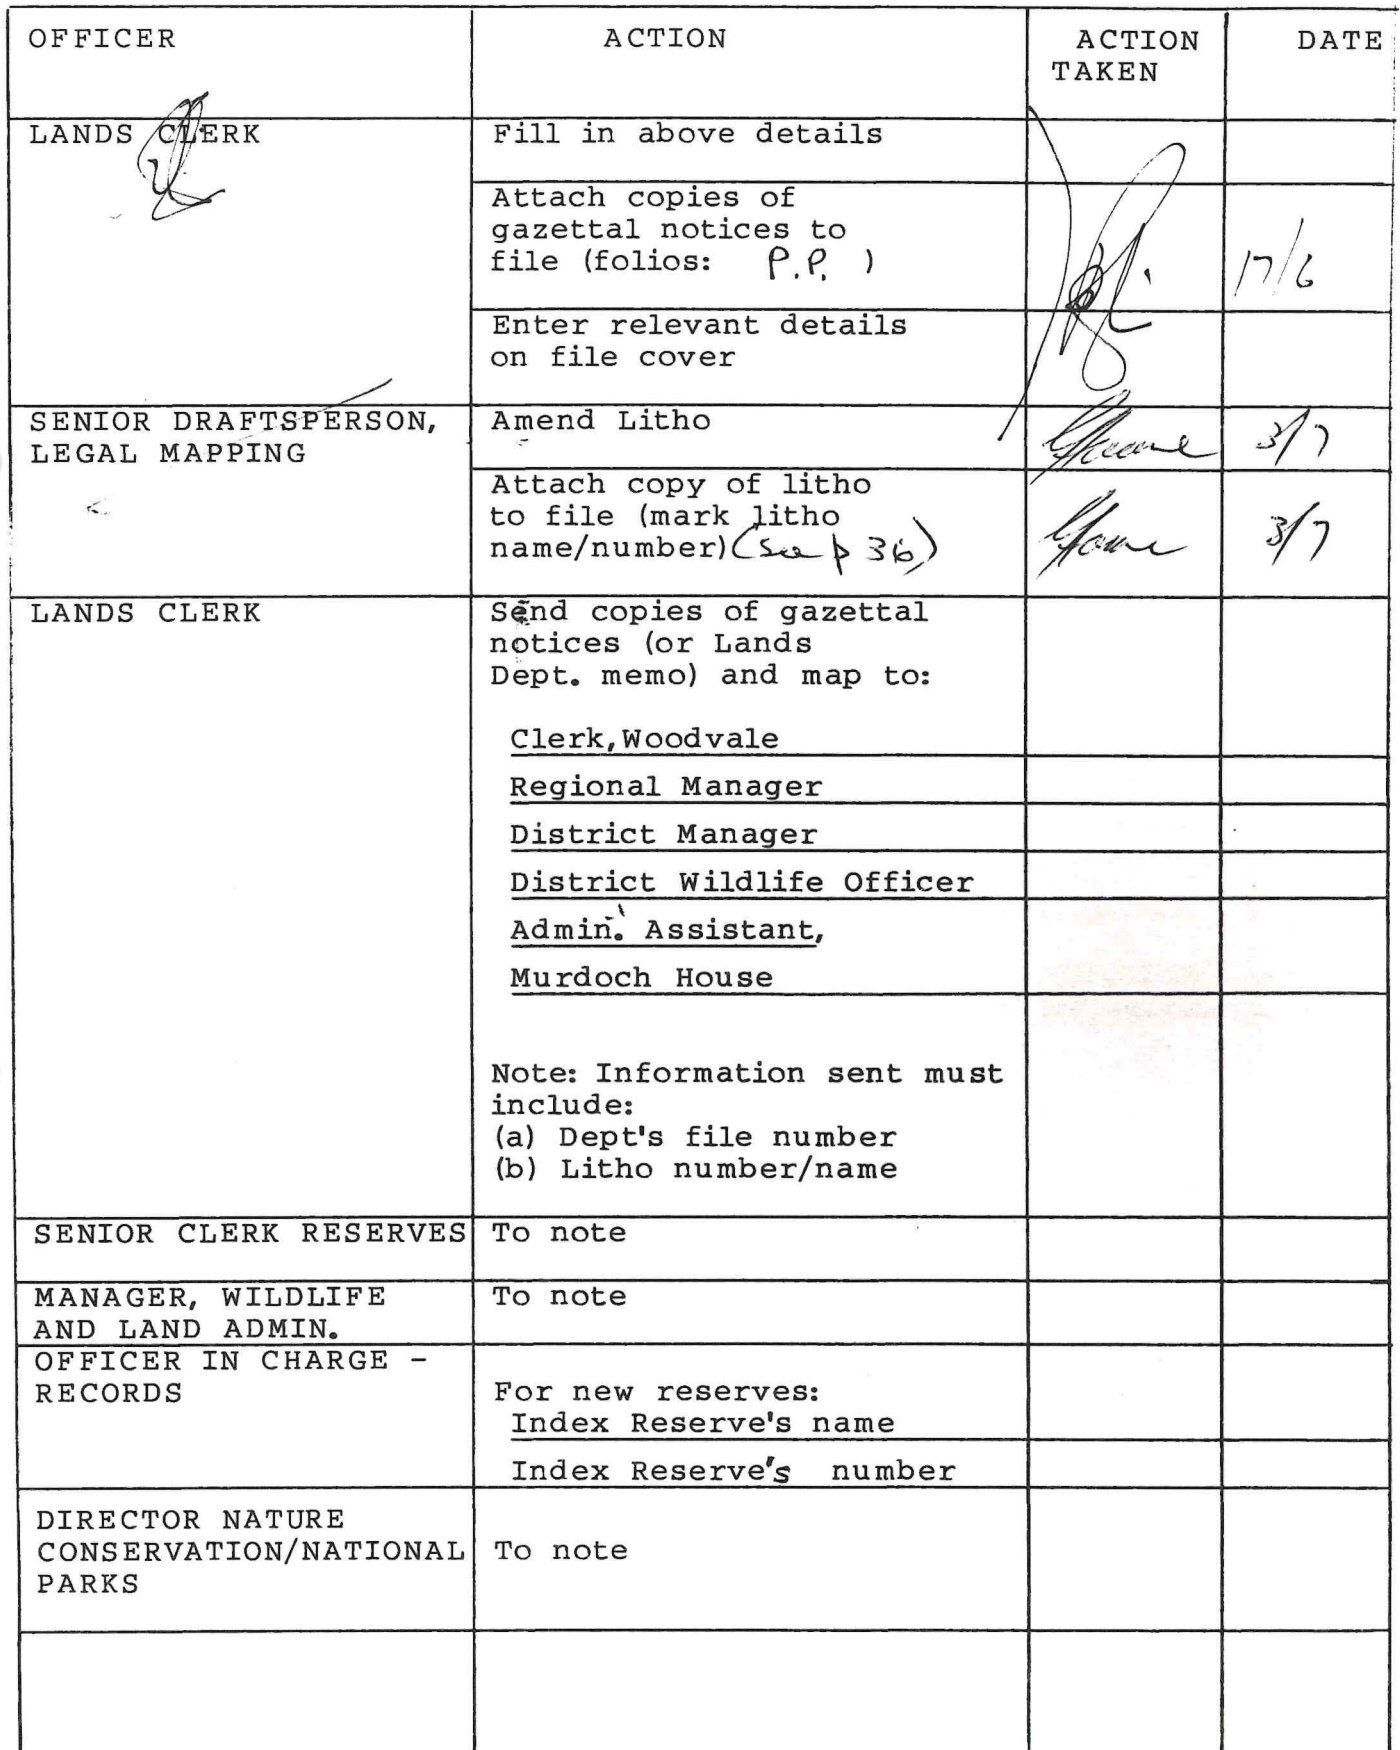 OFFICER ACTION ACTION TAKEN DATE
LANDS CLERK Fill in above details
Attach copies of
gazettal notices to
file (folios: P.P. ) 17/6
Enter relevant details
on file cover
SENIOR DRAFTSPERSON, Amend Litho 3/7
LEGAL MAPPING
Attach copy of litho
to file (mark litho
name/number) (See p 36) 3/7
LANDS CLERK Send copies of gazettal
notices (or Lands
Dept. memo) and map to:
Clerk,Woodvale
Regional Manager
District Manager
District Wildlife Officer
Admin. Assistant,
Murdoch House
Note: Information sent must
include:
(a) Dept's file number
(b) Litho number/name
SENIOR CLERK RESERVES To note
MANAGER, WILDLIFE To note
AND LAND ADMIN.
OFFICER IN CHARGE -
RECORDS For new reserves:
Index Reserve's name
Index Reserve's number
DIRECTOR NATURE
CONSERVATION/NATIONAL To note
PARKS